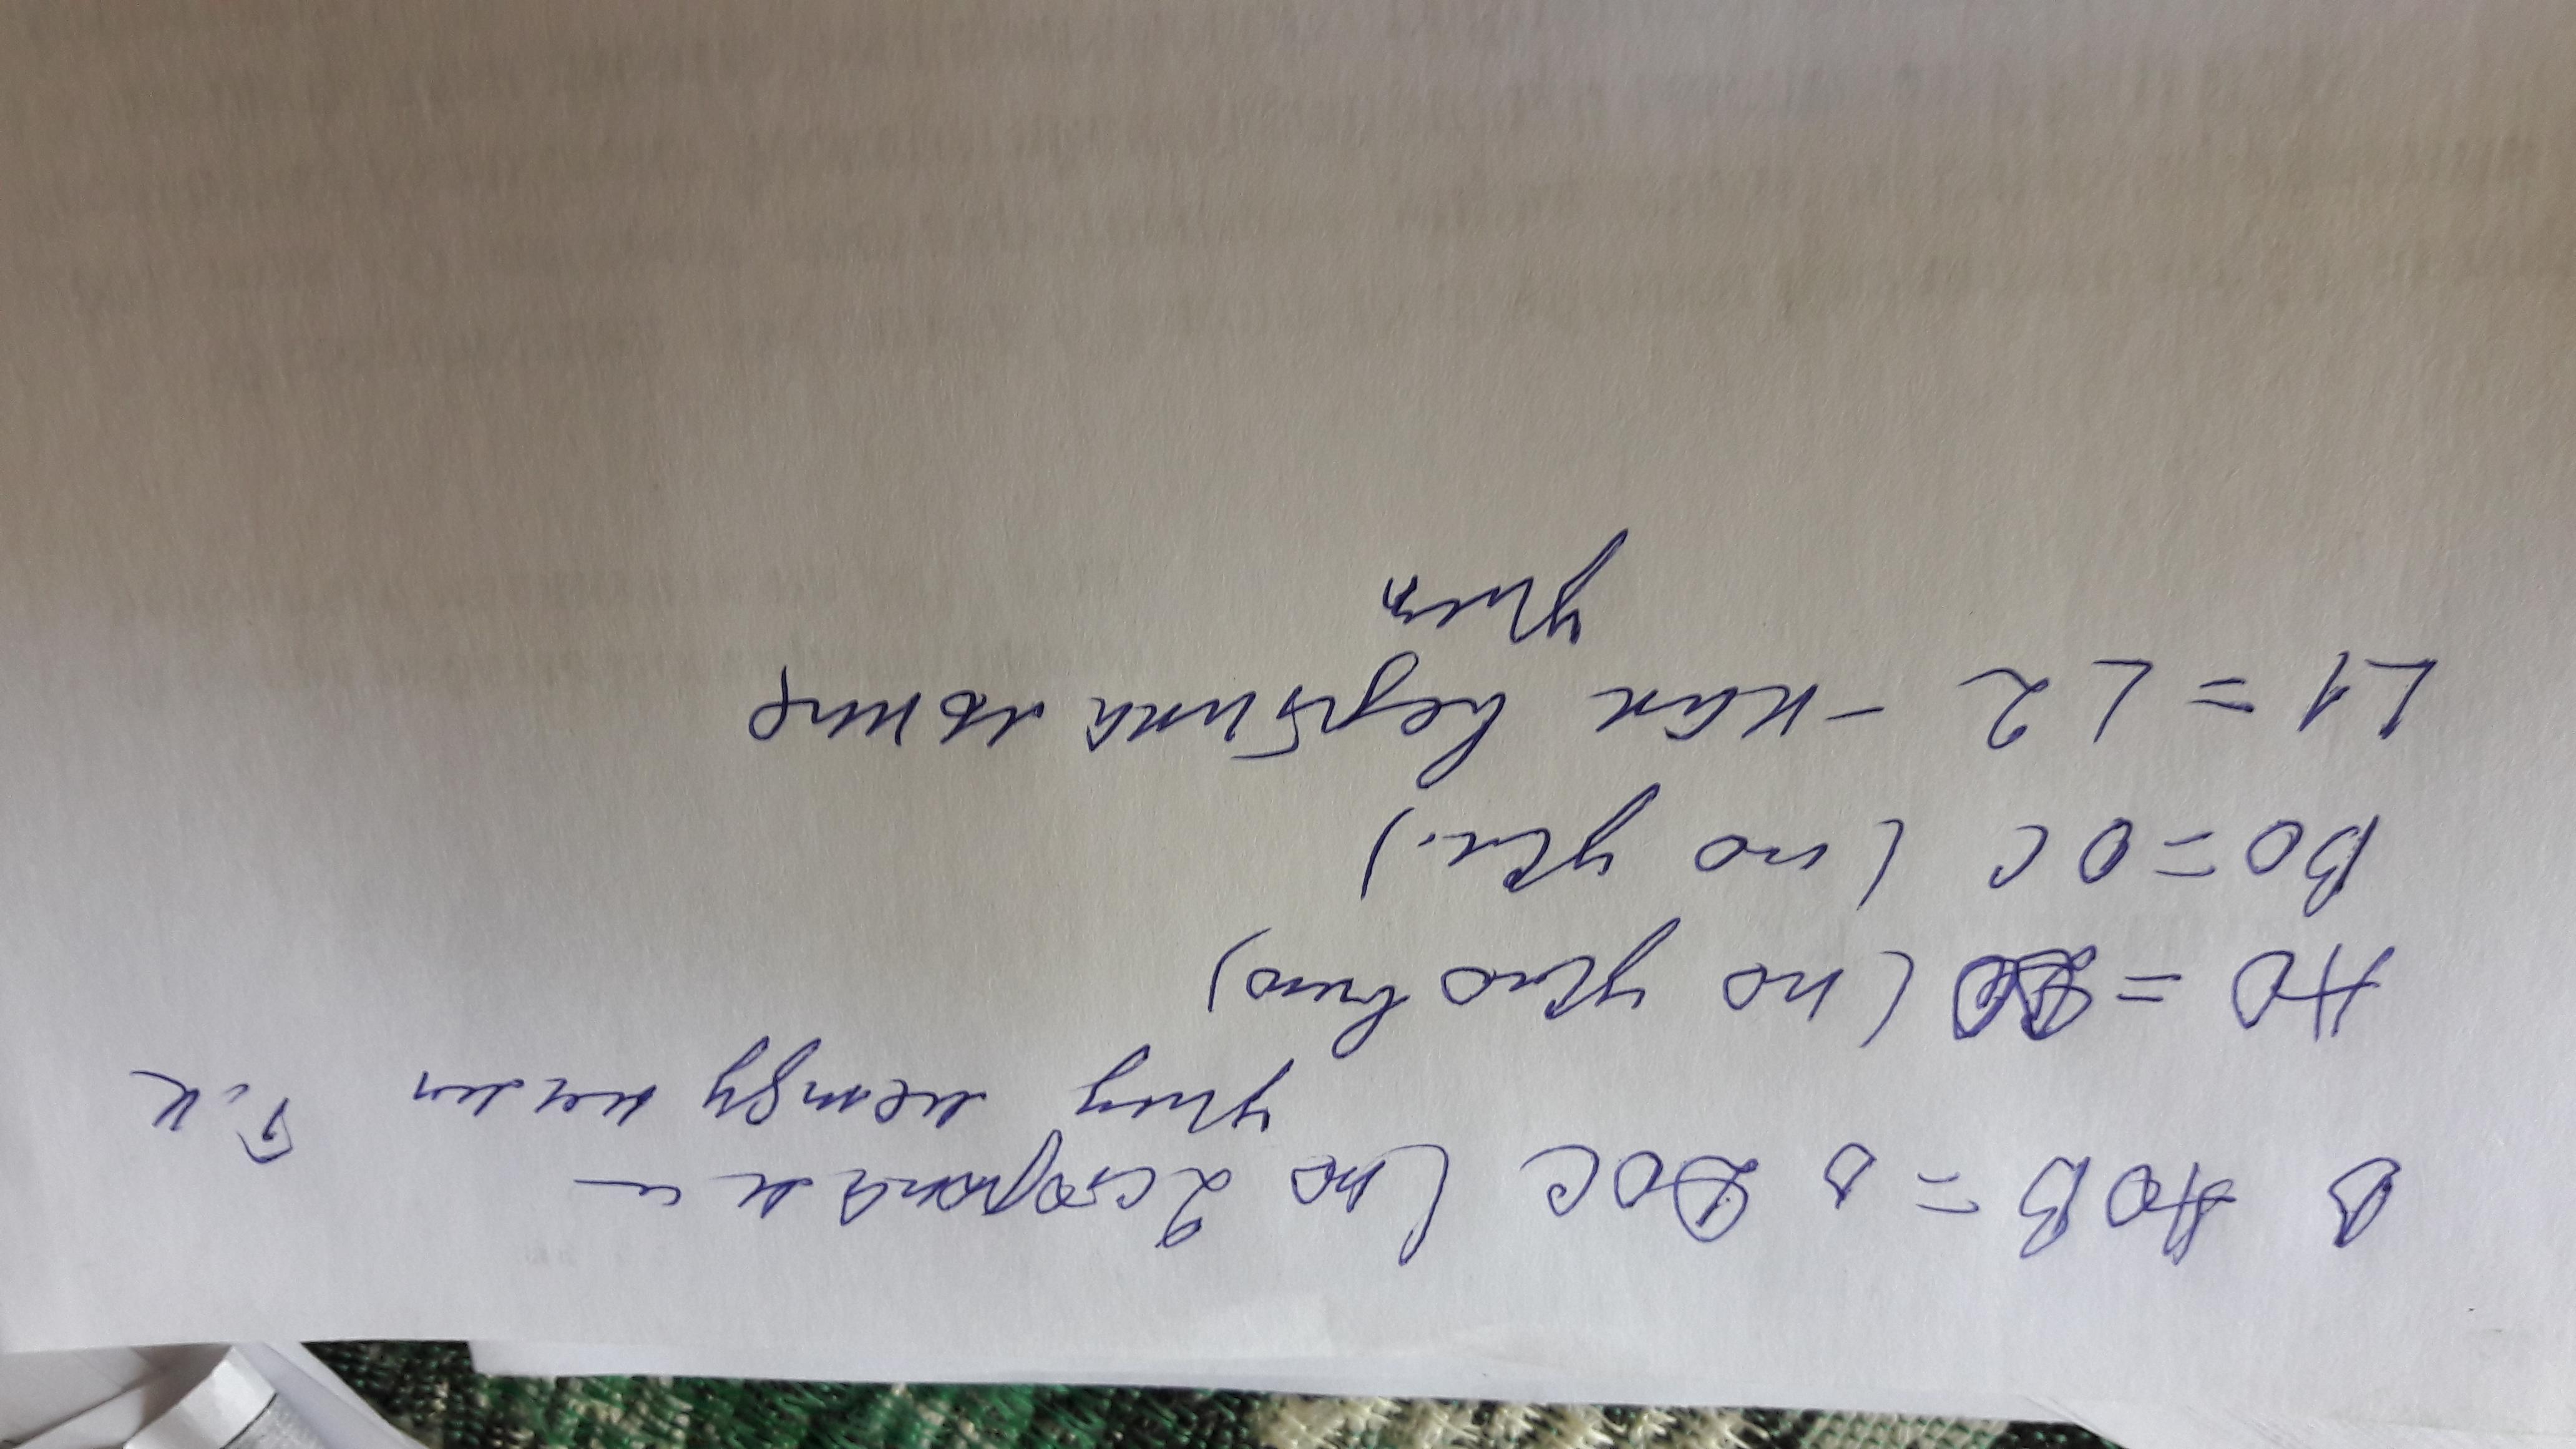 Δ AOB = Δ DOC (по 2 сторонам и
углу между ними т.к
AO = DO (по условию)
BO = OC (по усл.)
∠1 = ∠2 - как вертикальные
углы